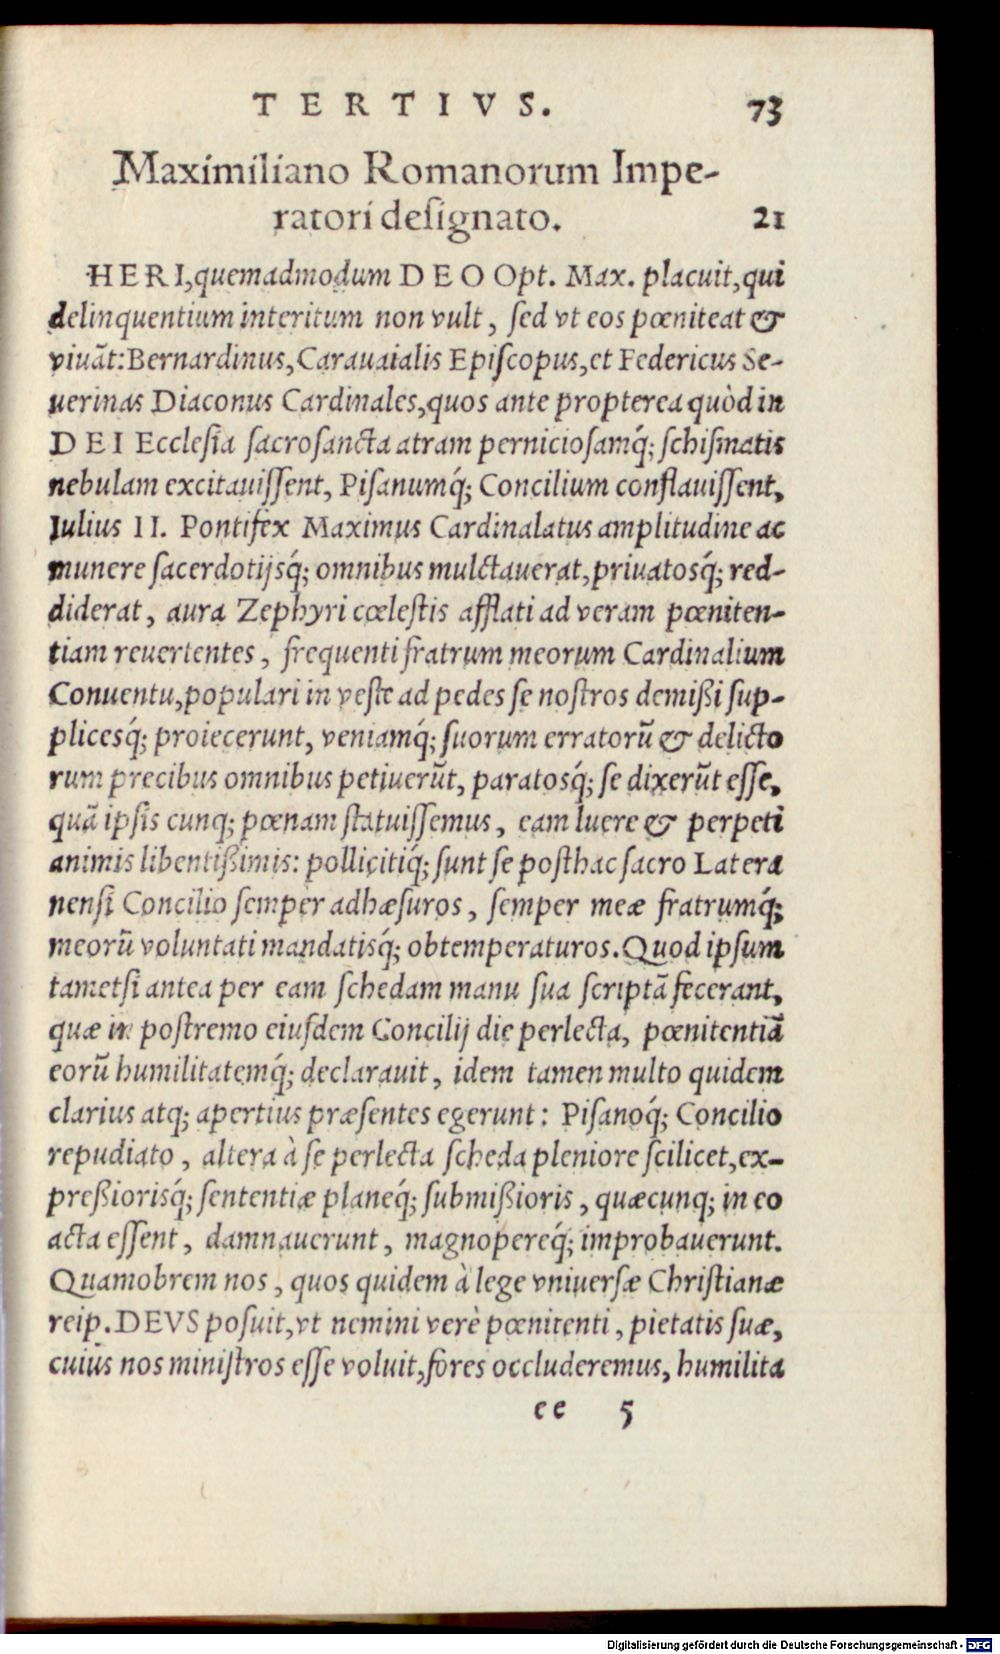 TERTIVS. 73
Maximiliano Romanorum Impe-
ratori deſignato. 21
HERI,quemadmodum DEO Opt. Max. placuit,qui
delinquentium interitum non vult, ſed vt eos pœniteat &
viuãt:Bernardinus,Carauaialis Epiſcopus,et Federicus Se-
uerinas Diaconus Cardinales,quos ante propterea quòd in
DEI Eccleſia ſacroſancta atram pernicioſamq́; ſchiſmatis
nebulam excitauiſſent, Piſanumq́; Concilium conflauiſſent,
Iulius II. Pontifex Maximus Cardinalatus amplitudine ac
munere ſacerdotijsq́; omnibus mulctauerat,priuatosq́; red-
diderat, aura Zephyri cœleſtis afflati ad veram pœniten-
tiam reuertentes, frequenti fratrum meorum Cardinalium
Conuentu,populari in veſte ad pedes ſe noſtros demißi ſup-
plicesq́; proiecerunt, veniamq́; ſuorum erratorũ & delicto
rum precibus omnibus petiuerũt, paratosq́; ſe dixerũt eſſe,
quã ipſis cunq; pœnam ſtatuiſſemus, eam luere & perpeti
animis libentißimis: pollicitiq́; ſunt ſe poſthac ſacro Latera
nenſi Concilio ſemper adhæſuros, ſemper meæ fratrumq́;
meorũ voluntati mandatisq́; obtemperaturos. Quod ipſum
tametſi antea per eam ſchedam manu ſua ſcriptã fecerant,
quæ in poſtremo eiuſdem Concilij die perlecta, pœnitentiã
eorũ humilitatemq́; declarauit, idem tamen multo quidem
clarius atq; apertius præſentes egerunt: Piſanoq́; Concilio
repudiato, altera à ſe perlecta ſcheda pleniore ſcilicet,ex-
preßiorisq́; ſententiæ planeq́; ſubmißioris, quæcunq; in eo
acta eſſent, damnauerunt, magnopereq́; improbauerunt.
Quamobrem nos, quos quidem à lege vniuerſæ Chriſtianæ
reip. DEVS poſuit,vt nemini verè pœnitenti, pietatis ſuæ,
cuius nos miniſtros eſſe voluit,fores occluderemus, humilita
ee 5
Digitalisierung gefördert durch die Deutsche Forschungsgemeinschaft - DFG